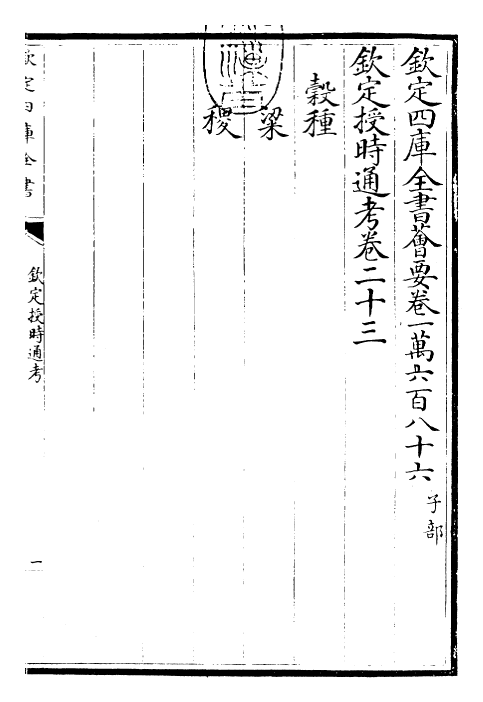 欽定四庫全書薈要卷一萬六百八十六 子部
欽定授時通考卷二十三
穀種
粱
稷
欽定四庫全書
欽定授時通考
一